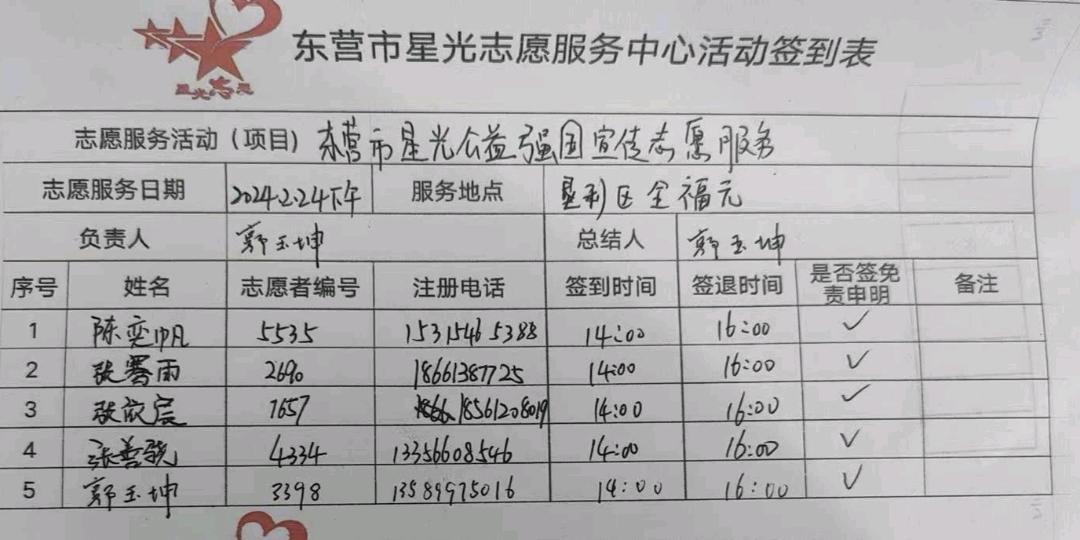 星光志愿
东营市星光志愿服务中心活动签到表
志愿服务活动（项目） 东营市星光公益强国宣传志愿服务
志愿服务日期 2024.2.24下午 服务地点 垦利区全福元
负责人 郭玉坤 总结人 郭玉坤
序号 姓名 志愿者编号 注册电话 签到时间 签退时间 是否签免责申明 备注
1 陈奕帆 5535 15315465388 14:00 16:00 ✓
2 张骞雨 2690 18661387725 14:00 16:00 ✓
3 张依宸 1657 18561208019 14:00 16:00 ✓
4 张善骁 4334 13356608546 14:00 16:00 ✓
5 郭玉坤 3398 13589975016 14:00 16:00 ✓